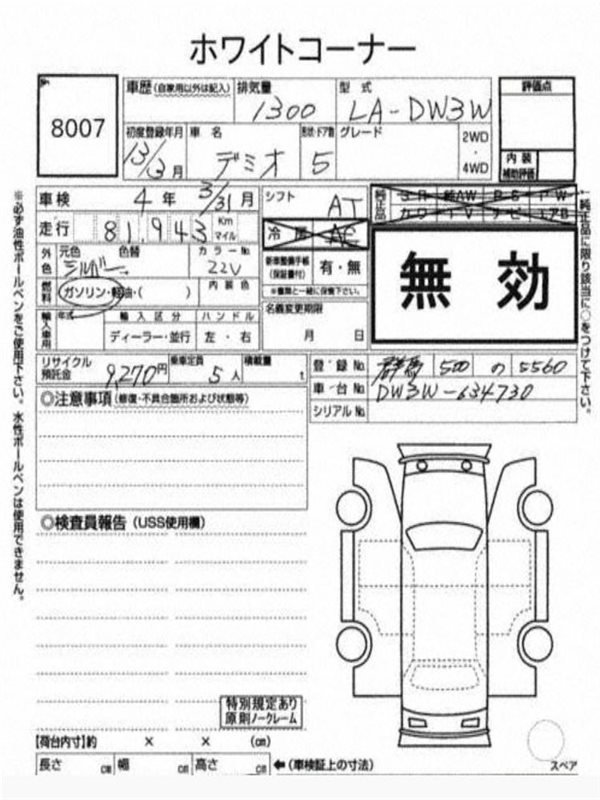 ホワイトコーナー
8007
車歴 (自家用以外は記入) 排気量 型式 評価点
1300 LA-DW3W
初度登録年月 車名 形状・ドア数 グレード 2WD
13/3月 デミオ 5 ・
4WD
内装
補助評価
車検 4年 3/31月 シフト AT
純正品 SR 純AW PS PW
カワ TV ナビ エアB
走行 81,943 Km
マイル
冷房 AC
外色 元色 色替 カラーNo. 新車整備手帳
(保証書付) 有・無
シルバー 22V
※書類と一緒に保管下さい。
燃料 ガソリン・軽油・( ) 内装色
無効
名義変更期限
月 日
輸入車用 年式 輸入区分 ハンドル
ディーラー・並行 左・右
リサイクル
預託金 9,270円 乗車定員 5人 積載量 t
登録No. 群馬 500 の 5560
車台No. DW3W-634730
シリアルNo.
◎注意事項 (修復・不具合箇所および状態等)
◎検査員報告 (USS使用欄)
特別規定あり
原則ノークレーム
【荷台内寸】約 × × (㎝)
長さ ㎝ 幅 ㎝ 高さ ㎝ ← (車検証上の寸法)
スペア
※必ず油性ボールペンをご使用下さい。水性ボールペンは使用できません。
純正品に限り該当に○をつけて下さい。